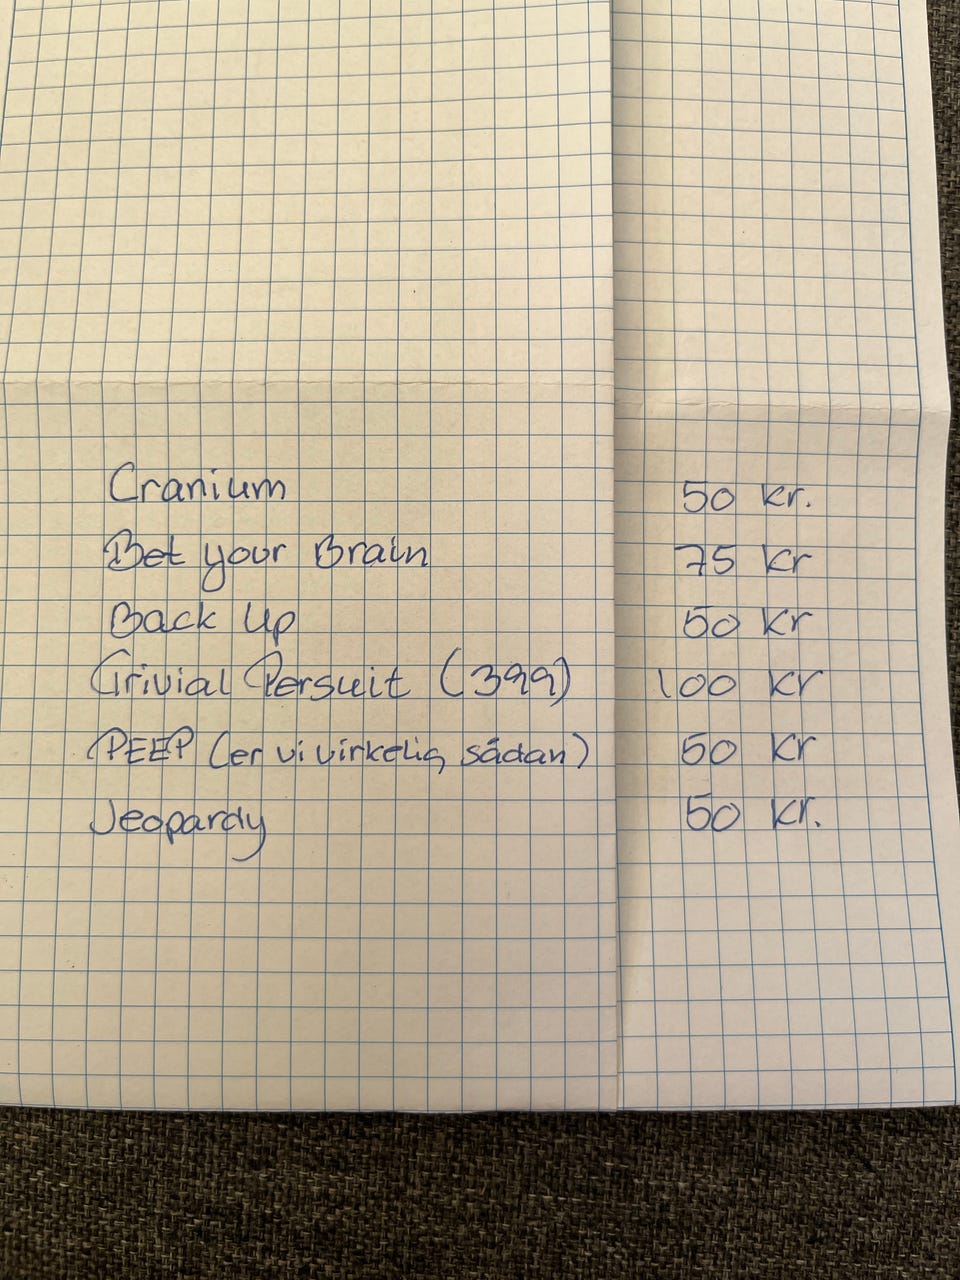 Cranium 50 kr.
Bet your Brain 75 kr
Back Up 50 kr
Trivial Persuit (399) 100 kr
PEEP (er vi virkelig sådan) 50 kr
Jeopardy 50 kr.